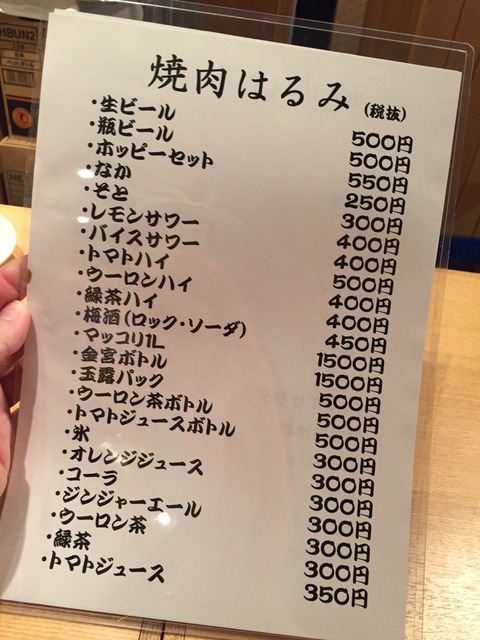 焼肉はるみ (税抜)
・生ビール 500円
・瓶ビール 500円
・ホッピーセット 550円
・なか 250円
・そと 300円
・レモンサワー 400円
・バイスサワー 400円
・トマトハイ 500円
・ウーロンハイ 400円
・緑茶ハイ 400円
・梅酒(ロック・ソーダ) 450円
・マッコリ1L 1500円
・金宮ボトル 1500円
・玉露パック 500円
・ウーロン茶ボトル 500円
・トマトジュースボトル 500円
・氷 300円
・オレンジジュース 300円
・コーラ 300円
・ジンジャーエール 300円
・ウーロン茶 300円
・緑茶 300円
・トマトジュース 350円
HBUN2